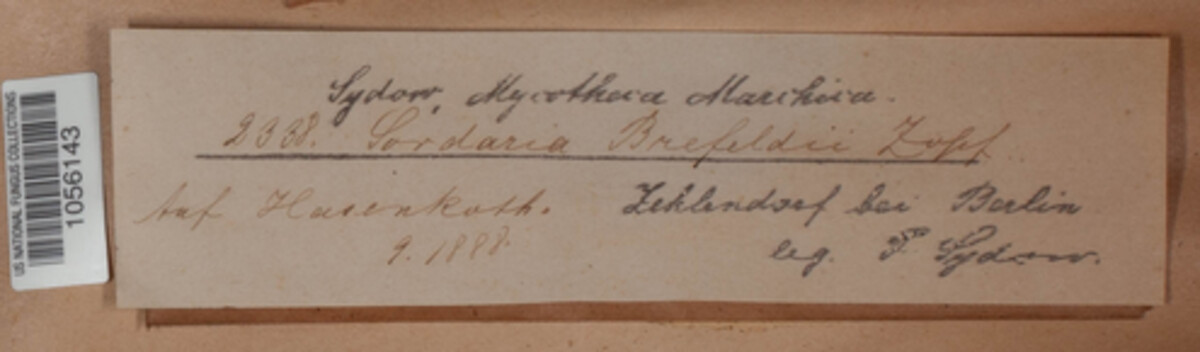 US NATIONAL FUNGUS COLLECTIONS
1056143
Sydow, Mycotheca Marchica.
2338. Sordaria Brefeldii Zopf
Auf Hasenkoth. Zehlendorf bei Berlin
9. 1888. leg. P. Sydow.